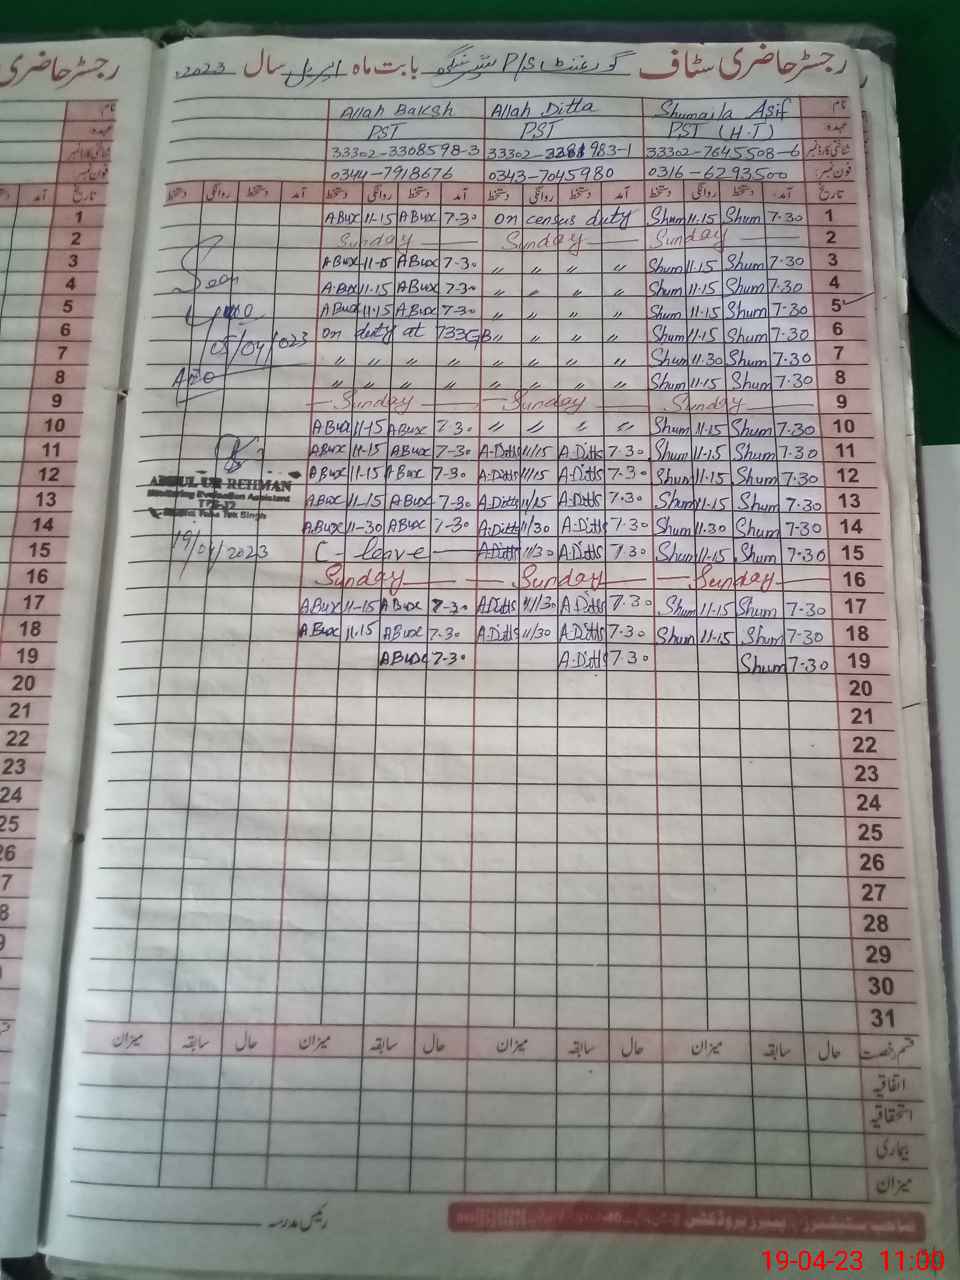 رجسٹر حاضری سٹاف گورنمنٹ P/S بابت ماہ اپریل سال 2023ء
رجسٹر حاضری
نام Shumaila Asif Allah Ditta Allah Baksh
عہدہ PST (H.T) PST PST
شناختی کارڈ نمبر 33302-7645508-6 33302-3308598-3
فون نمبر 0316-6293500 0343-7045980 0344-7918676
تاریخ آمد دستخط روانگی دستخط آمد دستخط روانگی دستخط آمد دستخط روانگی دستخط آمد دستخط روانگی دستخط
1 7-30 Shum 11-15 Shum on census duty 7-30 ABux 11-15 ABux
2 Sunday Sunday Sunday
3 7-30 Shum 11-15 Shum " " " " 7-30 ABux 11-15 ABux
4 7-30 Shum 11-15 Shum " " " " 7-30 ABux 11-15 ABux
5 7-30 Shum 11-15 Shum " " " " 7-30 ABux 11-15 ABux
6 7-30 Shum 11-15 Shum " " " " on duty at 733GB
7 7-30 Shum 11-30 Shum " " " " " " " "
8 7-30 Shum 11-15 Shum " " " " " " " "
9 Sunday Sunday Sunday
10 7-30 Shum 11-15 Shum " " " " 7-30 ABux 11-15 ABux
11 7-30 Shum 11-15 Shum 7-30 A.Ditta 11/15 A.Ditta 7-30 ABux 11-15 ABux
12 7-30 Shum 11-15 Shum 7-30 A.Ditta 11/15 A.Ditta 7-30 ABux 11-15 ABux
13 7-30 Shum 11-15 Shum 7-30 A.Ditta 11/15 A.Ditta 7-30 ABux 11-15 ABux
14 7-30 Shum 11-30 Shum 7-30 A.Ditta 11/30 A.Ditta 7-30 ABux 11-30 ABux
15 7-30 Shum 11-15 Shum 7-30 A.Ditta 11/30 A.Ditta C-leave
16 Sunday Sunday Sunday
17 7-30 Shum 11-15 Shum 7-30 A.Ditta 11/30 A.Ditta 7-30 ABux 11-15 ABux
18 7-30 Shum 11-15 Shum 7-30 A.Ditta 11/30 A.Ditta 7-30 ABux 11-15 ABux
19 7-30 Shum 7-30 A.Ditta 7-30 ABux
20
21
22
23
24
25
26
27
28
29
30
31
Seen
05/04/023
AEO
ABDUL UR REHMAN
Monitoring Evaluation Assistant
Toba Tek Singh
19/04/2023
قسم رخصت حال سابقہ میزان حال سابقہ میزان حال سابقہ میزان حال سابقہ میزان
اتفاقیہ
استحقاقیہ
بیماری
میزان
رئیس مدرسہ
19-04-23 11:00